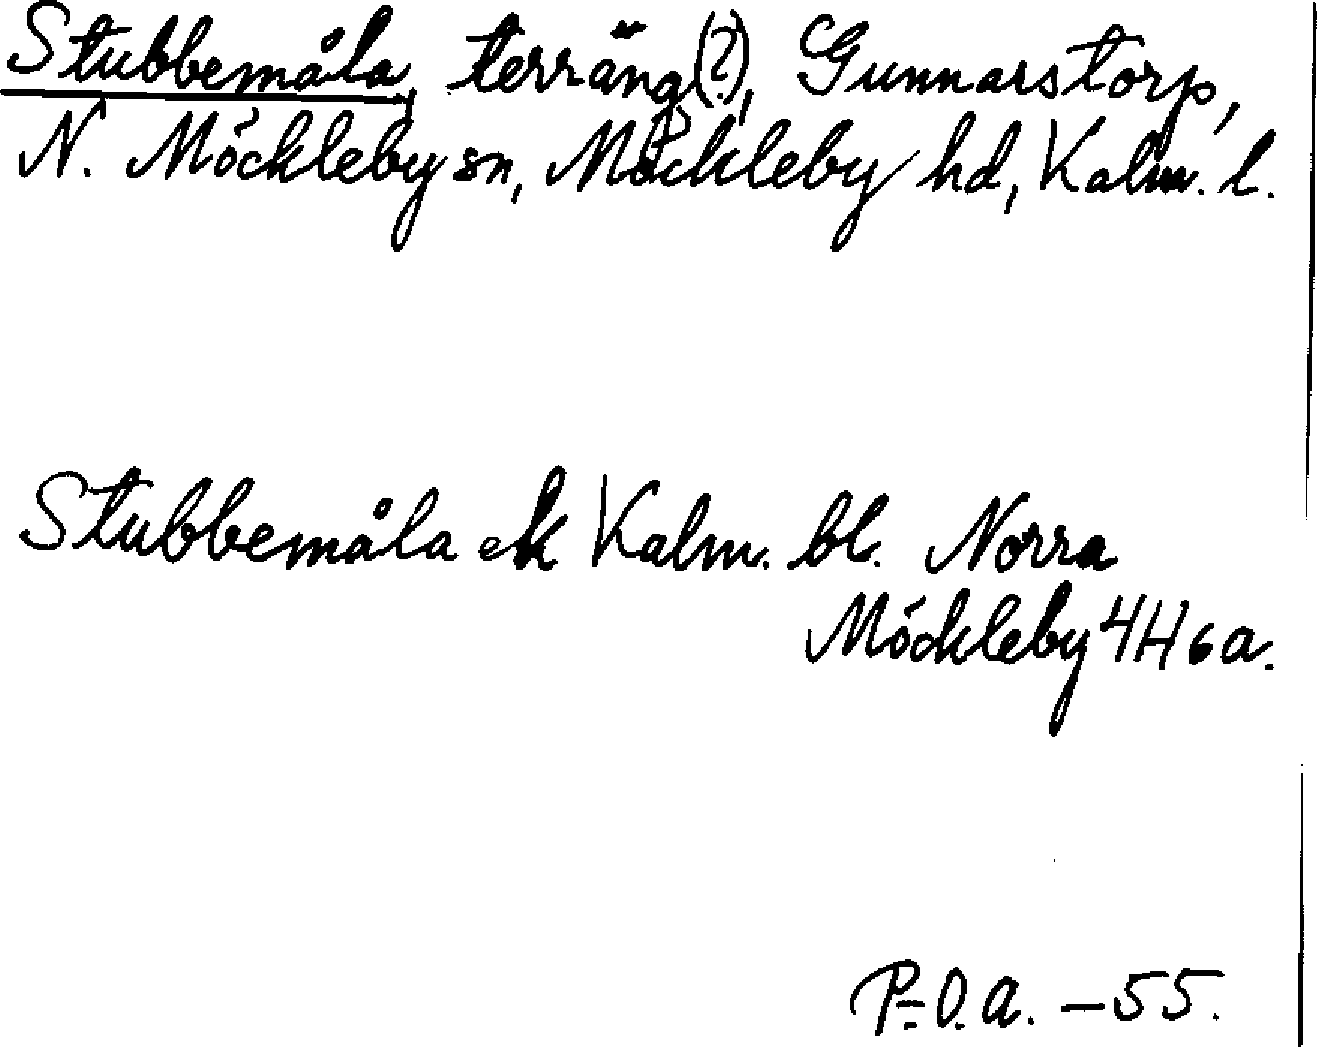 Stubbemåla, terräng(?), Gunnarstorp,
N. Möckleby sn, Möckleby hd, Kalm. l.
Stubbemåla ek Kalm. bl. Norra
Möckleby 4H6a.
P-O.A. -55.